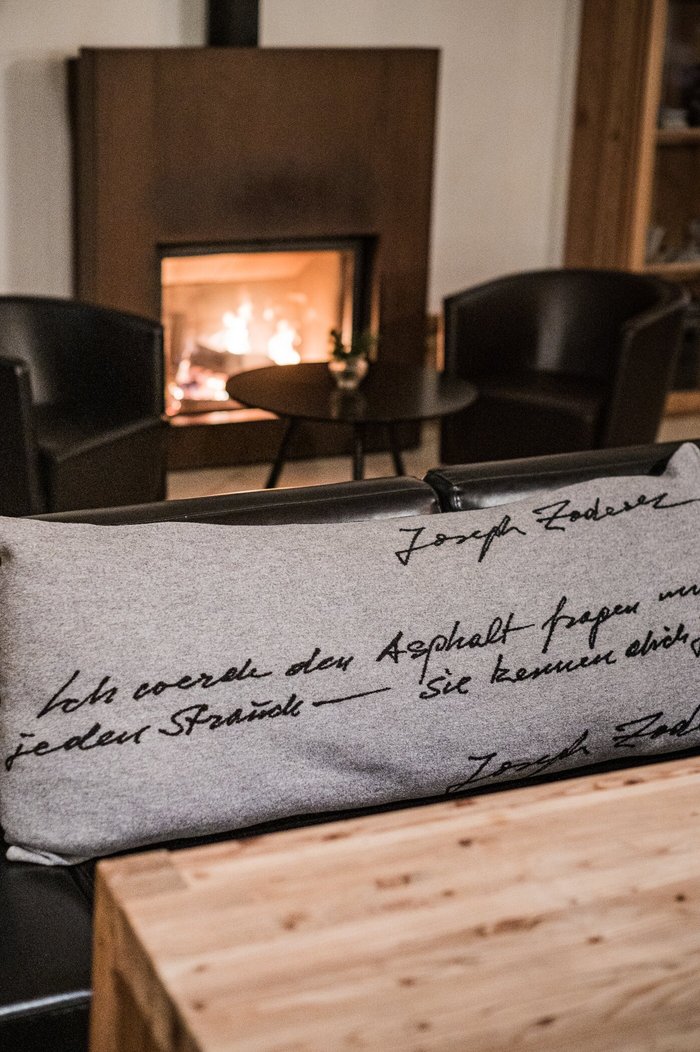 Joseph Zoderer
Ich werde den Asphalt fragen
jeden Strauch — sie kennen dich
Joseph